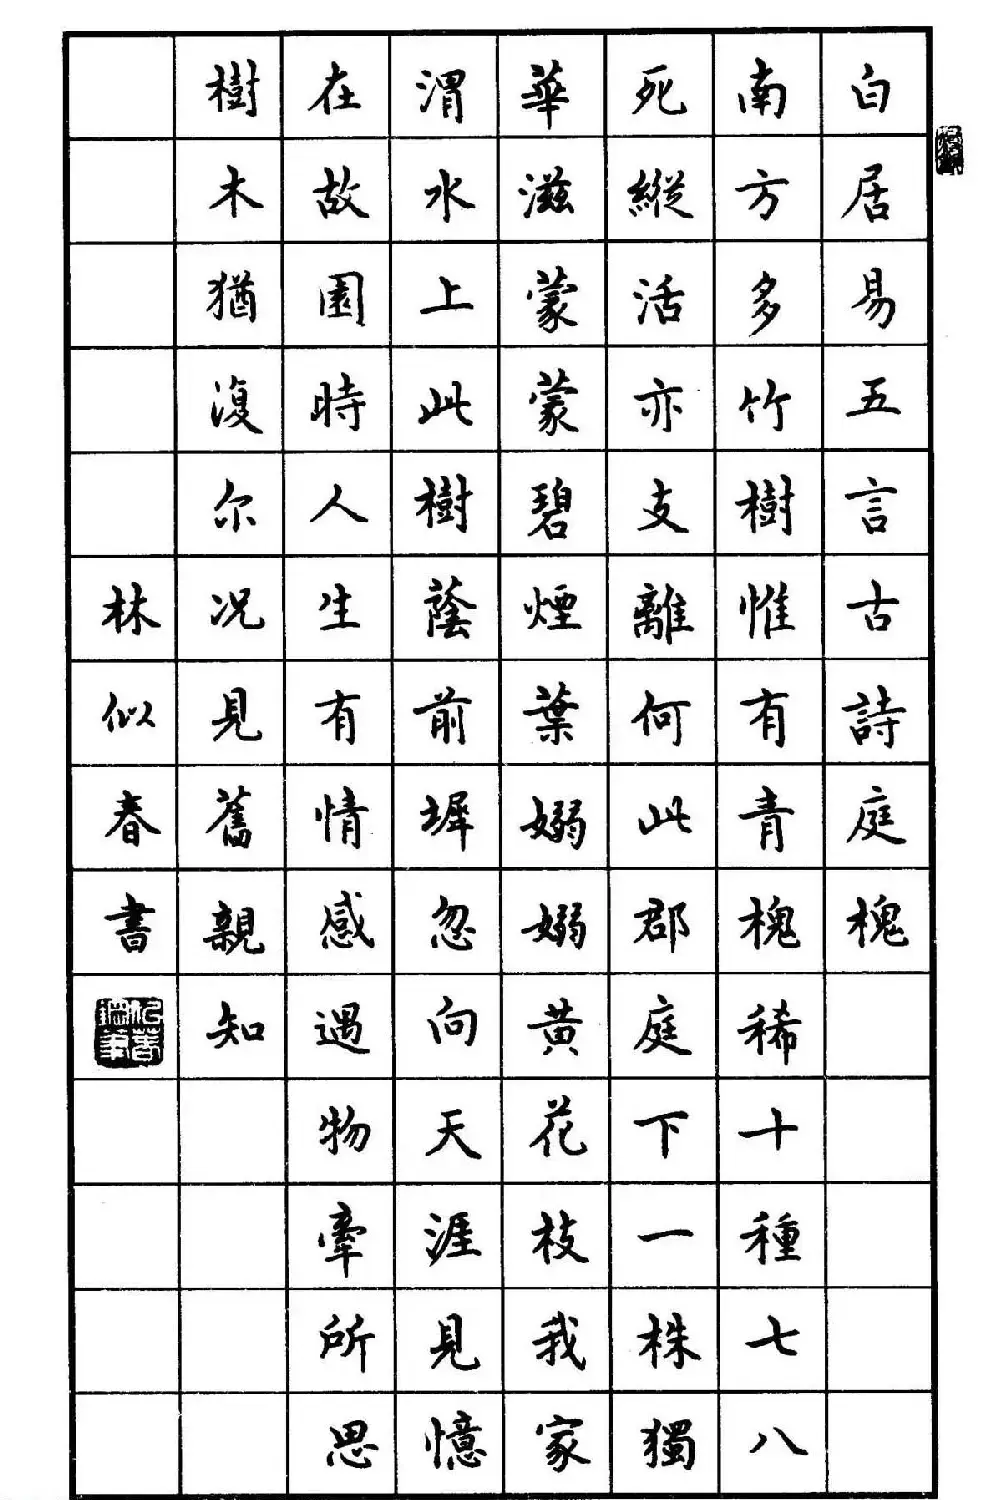 白居易五言古詩庭槐
南方多竹樹惟有青槐稀十種七八
死縱活亦支離何此郡庭下一株獨
華滋蒙蒙碧煙葉嫋嫋黃花枝我家
渭水上此樹蔭前墀忽向天涯見憶
在故園時人生有情感遇物牽所思
樹木猶復尔況見舊親知
林似春書